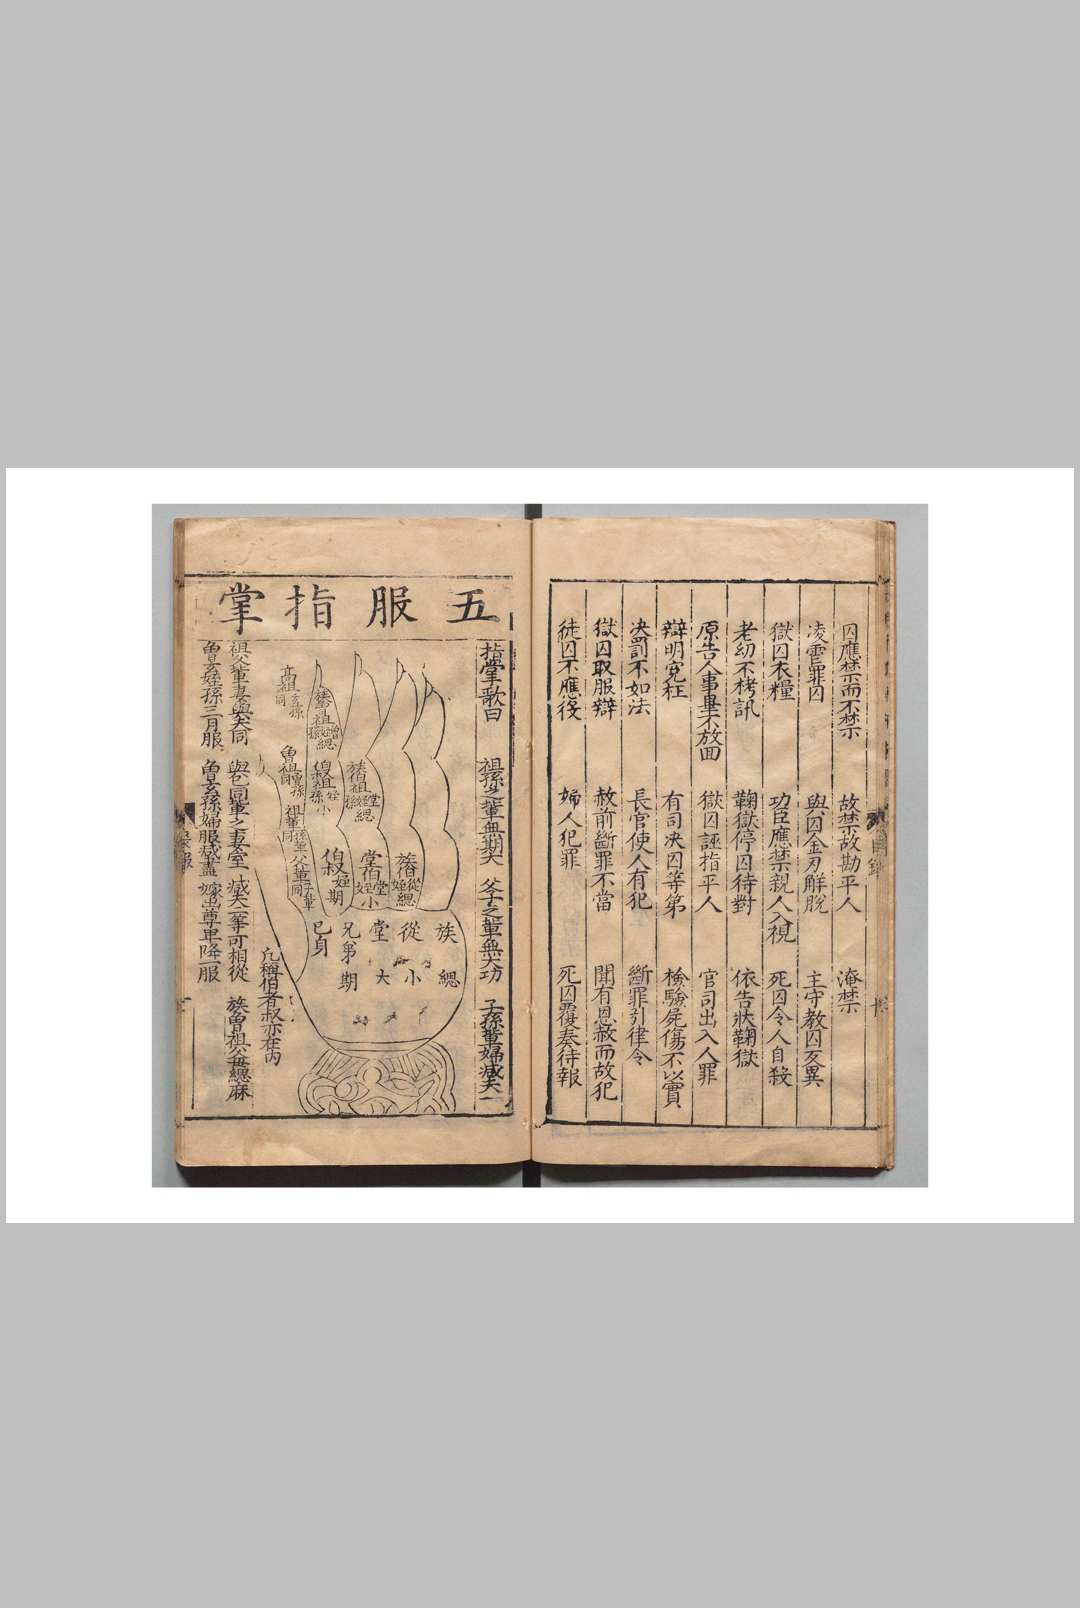 囚應禁而不禁　故禁故勘平人　淹禁
凌虐罪囚　與囚金刃解脫　主守教囚反異
獄囚衣糧　功臣應禁親人入視　死囚令人自殺
老幼不栲訊　鞫獄停囚待對　依告狀鞫獄
原告人事畢不放回　獄囚誣指平人　官司出入人罪
辯明冤枉　有司决囚等第　檢驗屍傷不以實
决罰不如法　長官使人有犯　斷罪引律令
獄囚取服辯　赦前斷罪不當　聞有恩赦而故犯
徒囚不應役　婦人犯罪　死囚覆奏待報
五服指掌
指掌歌曰　祖孫之輩無期大　父子之輩無大功　子孫輩婦減夫一
高祖玄孫同
族曾祖
總
曾祖曾孫同
伯叔祖
小
族伯祖
總
祖輩孫輩同
父輩子輩同
伯叔姪期
堂伯堂姪小
族伯從姪總
族總
從小
堂大
兄弟期
己身
凡稱伯者叔亦在內
祖父輩妻與夫同　與己同輩之妻室　減夫一等可相從　族曾祖父母總麻
曾玄姪孫三月服　曾玄孫婦服減盡　嫁出尊卑降一服